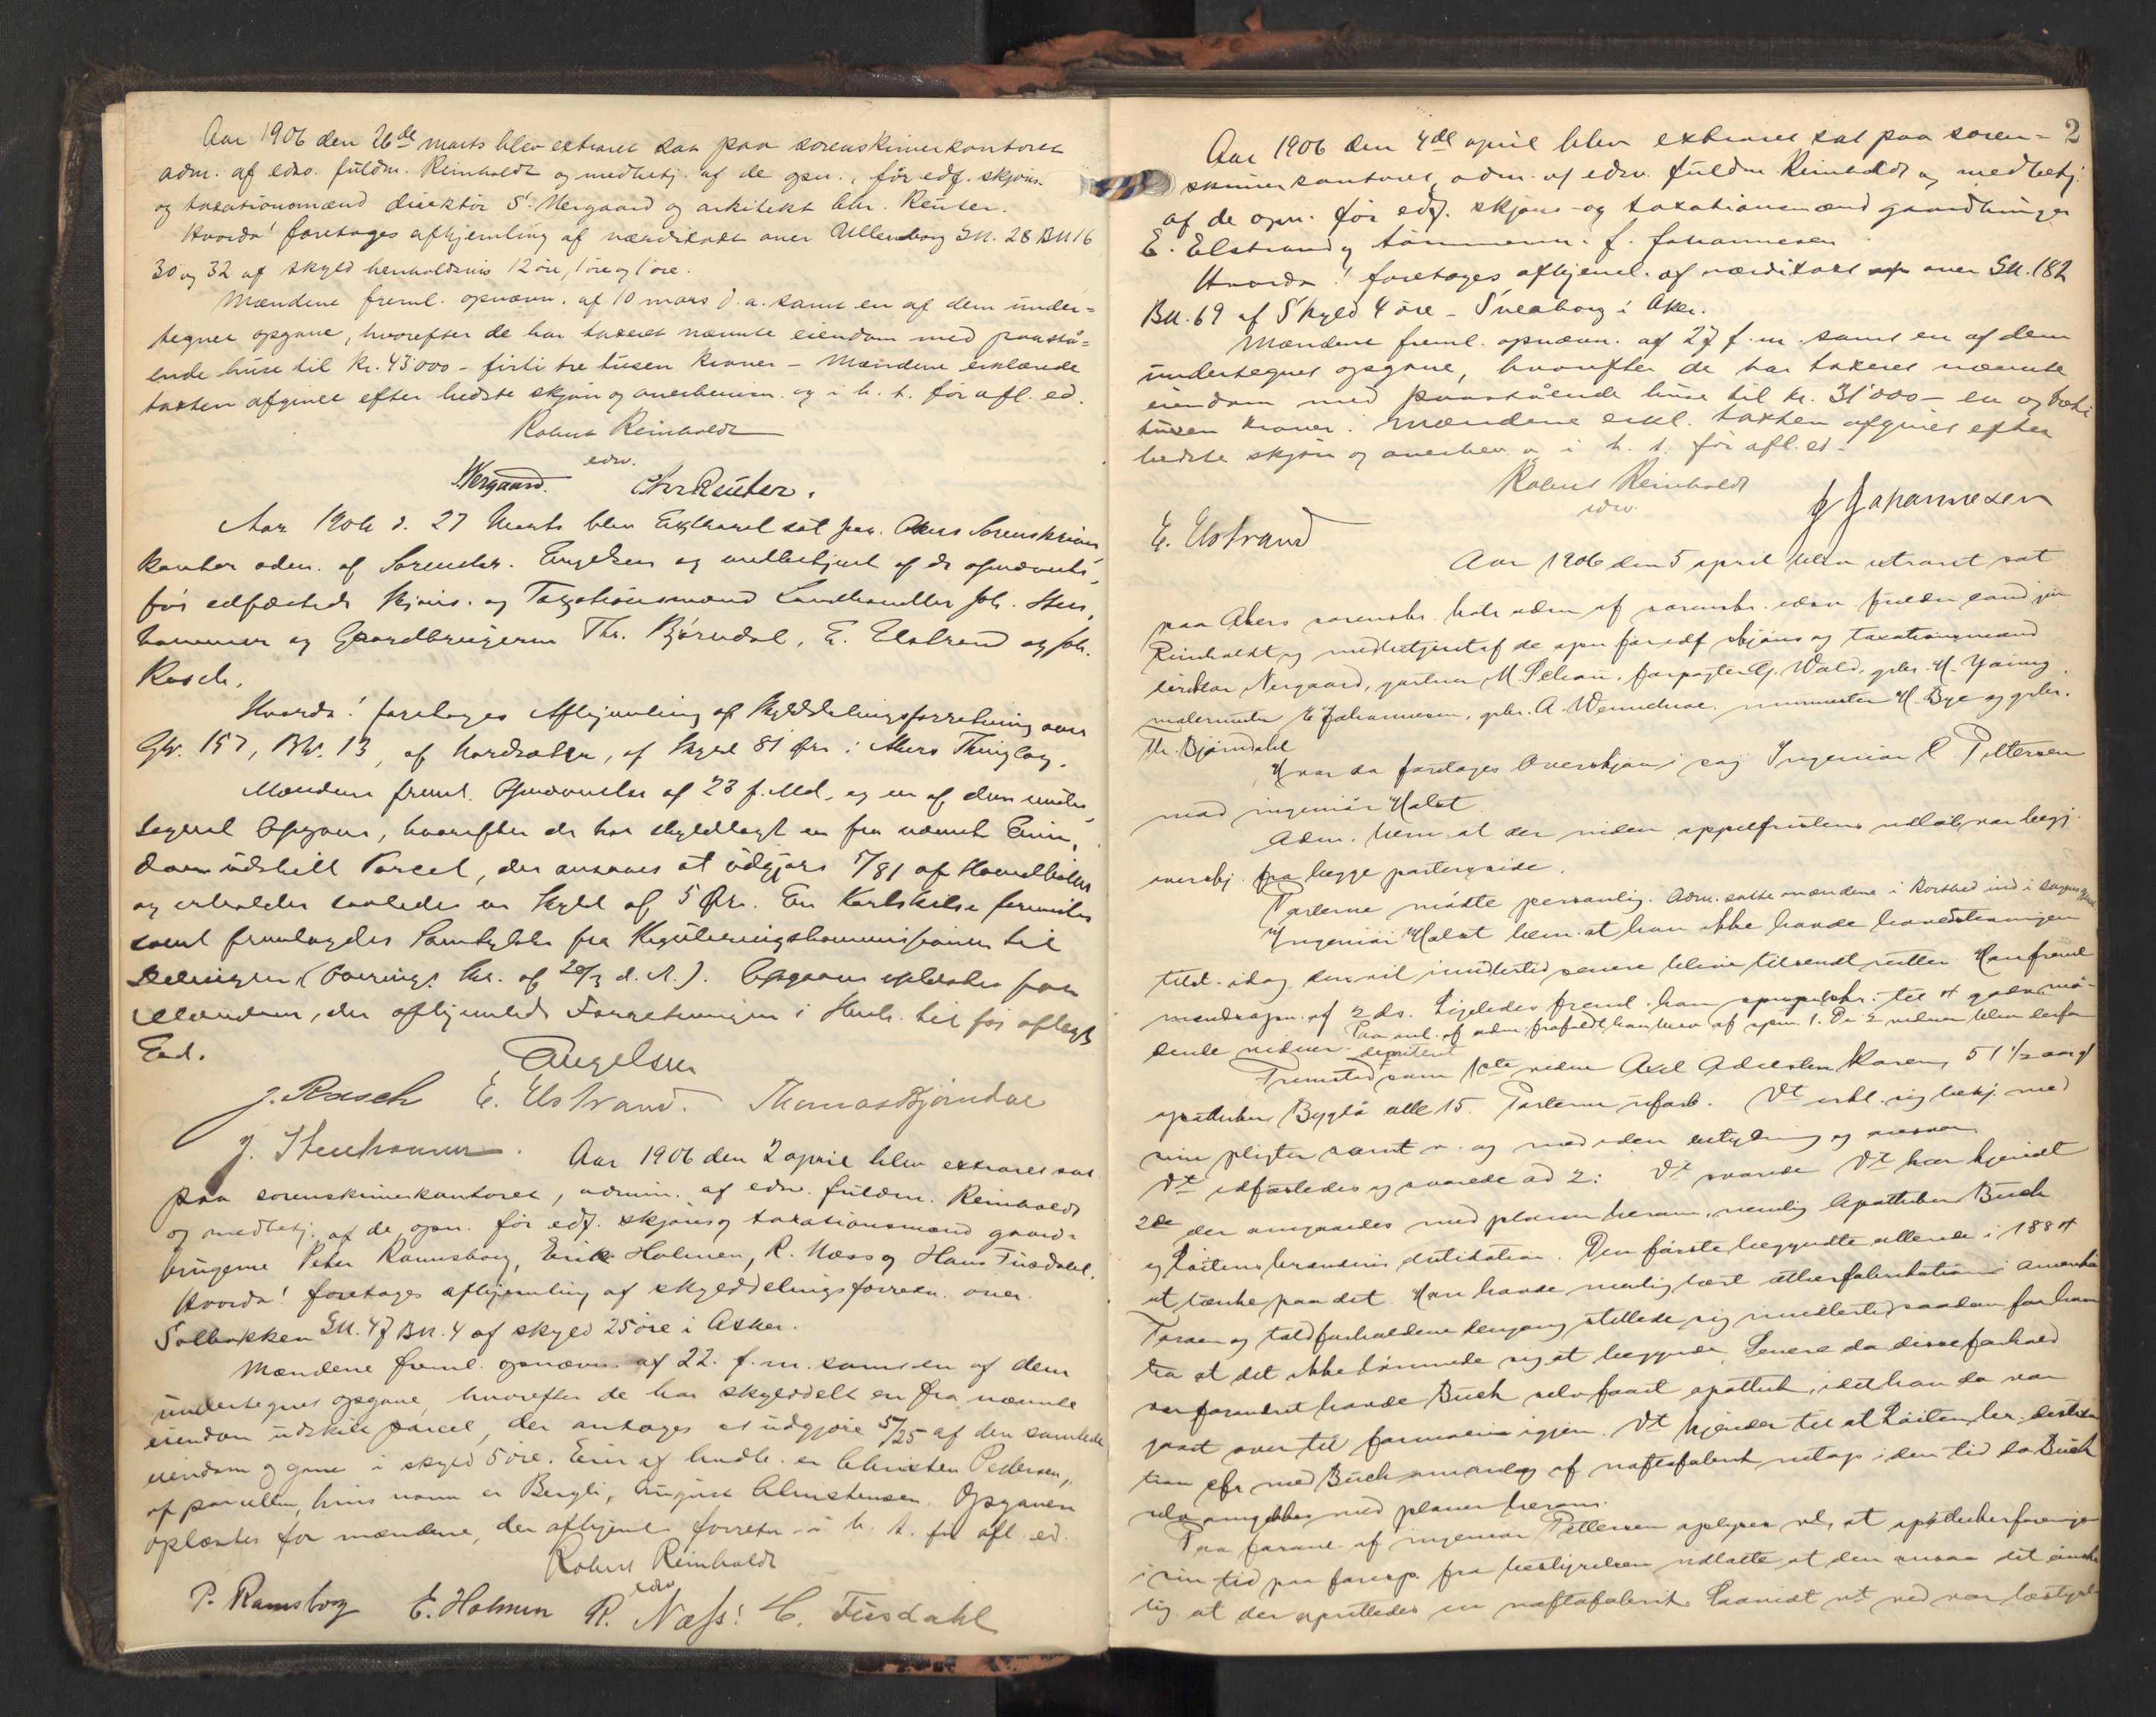 Aar 1906 den 26de marts blev extraret sat paa sorenskriverkontoret
adm. af edsv. fuldm. Reinholdt og medbetj. af de opn., før edf. skjøns-
og taxationsmænd direktør S. Nergaard og arkitekt Chr. Reuter.
Hvorda! foretoges afhjemling af værditaxt over Ullenborg Gn. 28 Bn 16
30 og 32 af skyld henholdsvis 12 øre, 1 øre og 1 øre.
Mændene freml. opnævn. af 10 mars d. a. samt en af dem under-
tegnet opgave, hvorefter de har taxeret nævnte eiendom med paastå-
ende huse til kr. 43'000 - firti tre tusen kroner - Mændene erklærede
taxten afgivet efter bedste skjøn og overbevisn. og i h. t. før afl. ed.
Robert Reinholdt
edsv.
S. Nergaard. Chr Reuter.
Aar 1906 d. 27 Marts blev Extraret sat paa Akers Sorenskriver
kontor adm. af Sorenskr. Engelsen og medbetjent af de opnævnte,
før edfæstede Skjøns- og Taxationsmænd Landhandler Joh. Sten-
hammer og Gaardbrugerne Th. Bjørndal, E. Elstrand og Joh.
Rasch.
Hvorda! foretoges Afhjemling af Skylddelingsforretning over
Gn. 157, Bn. 13, af Nordsæter, af Skyld 81 Øre i Akers Thinglag.
Mændene freml. Opnævnelse af 23 f. Md. og en af dem under-
tegnet Opgave, hvorefter de har skyldlagt en fra nævnte Eien-
dom udskilt Parcel, der ansaaes at udgjøre 5/81 af Hovedbølet
og erholder saaledes en Skyld af 5 Øre. En Kartskitse fremlagdes
samt fremlagdes Samtykke fra Reguleringskommissionen til
Delingen (Overing. Skr. af 20/3 d. A.). Opgaven oplæstes for
Mændene, der afhjemlede Forretningen i Henh. til før aflagt
Ed.
Engelsen
J. Rasch E. Elstrand. Thomas Bjørndal
J. Stenhammer.
Aar 1906 den 2 april blev extraret sat
paa sorenskriverkontoret, admin. af edsv. fuldm. Reinholdt
og medbetj. af de opn. før edf. skjøns og taxationsmænd gaard-
brugerne Peter Ramsborg, Erik Holmen, R. Næss og Hans Fusdahl.
Hvorda! foretoges afhjemling af skylddelingsforretn. over
Solbakken Gn. 47 Bn. 4 af skyld 25 øre i Asker.
Mændene freml. opnævn. af 22. f. m. samt en af dem
undertegnet opgave, hvorefter de har skylddelt en fra nævnte
eiendom udskilt parcel, der antages at udgjøre 5/25 af den samlede
eiendom og gave i skyld 5 øre. Eier af hovedb. er Christen Pedersen,
af parcellen, hvis navn er Bergli, August Christensen. Opgaven
oplæstes for mændene, der afhjeml. forretn. i h. t. før afl. ed.
Robert Reinholdt
edsv
P. Ramsborg E. Holmen R. Næss! H. Fusdahl
2
Aar 1906 den 4de april blev extraret sat paa soren-
skriverkontoret, adm. af edsv. fuldm Reinholdt og medbetj.
af de opn. før edf. skjøns- og taxationsmænd gaardbruger
E. Elstrand og tømmerm. J. Johannesen.
Hvorda! foretoges afhjeml. af værditaxt over Gn. 182
Bn. 69 af Skyld 4 øre - Sveaborg i Aker.
Mændene freml. opnævn. af 27 f. m. samt en af dem
undertegnet opgave, hvorefter de har taxeret nævnte
eiendom med paastående huse til kr. 31'000 - en og træti
tusen kroner. Mændene erkl. taxten afgivet efter
bedste skjøn og overbev. og i h. t. før afl. ed.
Robert Reinholdt
edsv.
E. Elstrand J Johannesen
Aar 1906 den 5 april blev extraret sat
paa Akers sorenskr. kontr. adm af sorenskr. edsv. fuldm cand jur
Reinholdt og medbetjent af de opn før edf skjøns og taxationsmænd
direktør Nergaard, gartner M Schou, forpagter G. Wald, gbr. H. Young,
malermester E Johannesen, gbr. A. Wennevoe, murmester H. Bye og gbr.
Th. Bjørndahl
Hvorda foretoges Overskjøn i sag Ingeniør C Pettersen
mod ingeniør Holst.
Adm. bem. at der inden appelfristens udløb var begj.
overskj. fra begge parters side.
Parterne mødte personlig. Adm. satte mændene i korthed ind i sagen
Ingeniør Holst bem. at han ikke havde hovedstevningen
tilst. idag, den vil imidlertid senere blive tilsendt retten. Han freml
mændsopn. af 2 ds. Ligeledes freml. han til 4 godv. mø-
dende vidner. Paa anl. af adm. frafaldt han besv. af spm. 1. De 2 vidner blev derfor
deponeret
Fremstod som 1ste vidne Axel Adersten Karen, 51 1/2 aar gl
apotheker Bygdø alle 15. Parterne uforb. Vt erkl. sig bekj. med
sine pligter samt v. og med eden betydning og ansvar.
Vt edfæstedes og svarede ad 2: Vt svarede Vt har kjendt
2de der omgaaedes med planer herom, nemlig Apotheker Buch
og Løitens brænderis destilation. Den første begyndte allerede i 1884
at tænke paa det. Han havde nemlig lært ætherfabrikation i Amerika
Toll og toldforholdene dengang stillede sig imidlertid saadan for ham
tra at det ikke lønnede sig at begynde. Senere da disse forhold
var forandret havde Buch selv faaet apothek, idet han da var
gaaet over til farmacien igjen. Vt kjender til at Løiten br. destila-
tion efr med Buch om anlæg af naftafabrik netop i den tid da Buch
selv omgikkes med planer herom.
Paa foranl. af ingeniør Pettersen oplyser vt, at apothekerforeningen
i sin tid paa foresp. fra bestyrelsen udtalte at den ansaa det ønske-
lig at der oprettedes en naftafabrik. Saavidt vt ved var bestyrel-